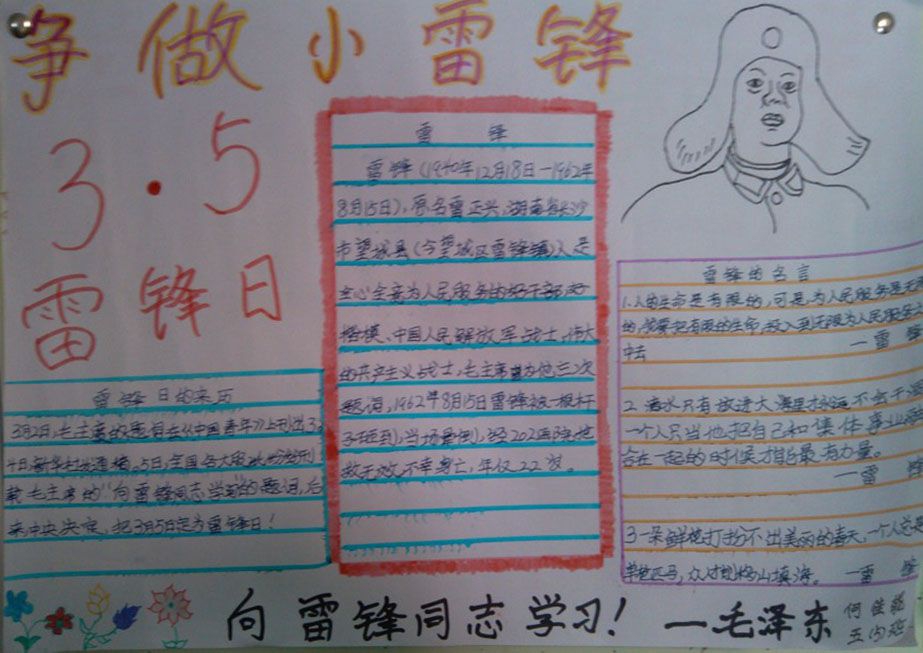 争做小雷锋
3·5
雷锋日
雷锋日的来历
3月2日,毛主席的题词在《中国青年》上刊出,3
4日,新华社发通稿。5日,全国各大报
载毛主席的“向雷锋同志学习”的题词,后
来中央决定,把3月5日定为雷锋日!
雷 锋
雷锋(1940年12月18日—1962年
8月15日),原名雷正兴,湖南省长沙
市望城县(今望城区雷锋镇)人,是
全心全意为人民服务的好干部,
楷模、中国人民解放军战士,伟大
的共产主义战士,毛主席曾为他三次
题词,1962年8月15日雷锋被一根杆
子砸到,当场晕倒,经202医院抢
救无效不幸身亡,年仅22岁。
雷锋的名言
1.人的生命是有限的,可是,为人民服务是无
的,我要把有限的生命,投入到无限为人民服
中去 —雷锋
2.滴水只有放进大海里才永远不会干
一个人只当他把自己和集体事业
合在一起的时候才能最有力量。
—雷锋
3一朵鲜花打扮不出美丽的春天,一个人
单枪匹马,众才能移山填海。 —雷锋
向雷锋同志学习! —毛泽东
何佳
五(4)班